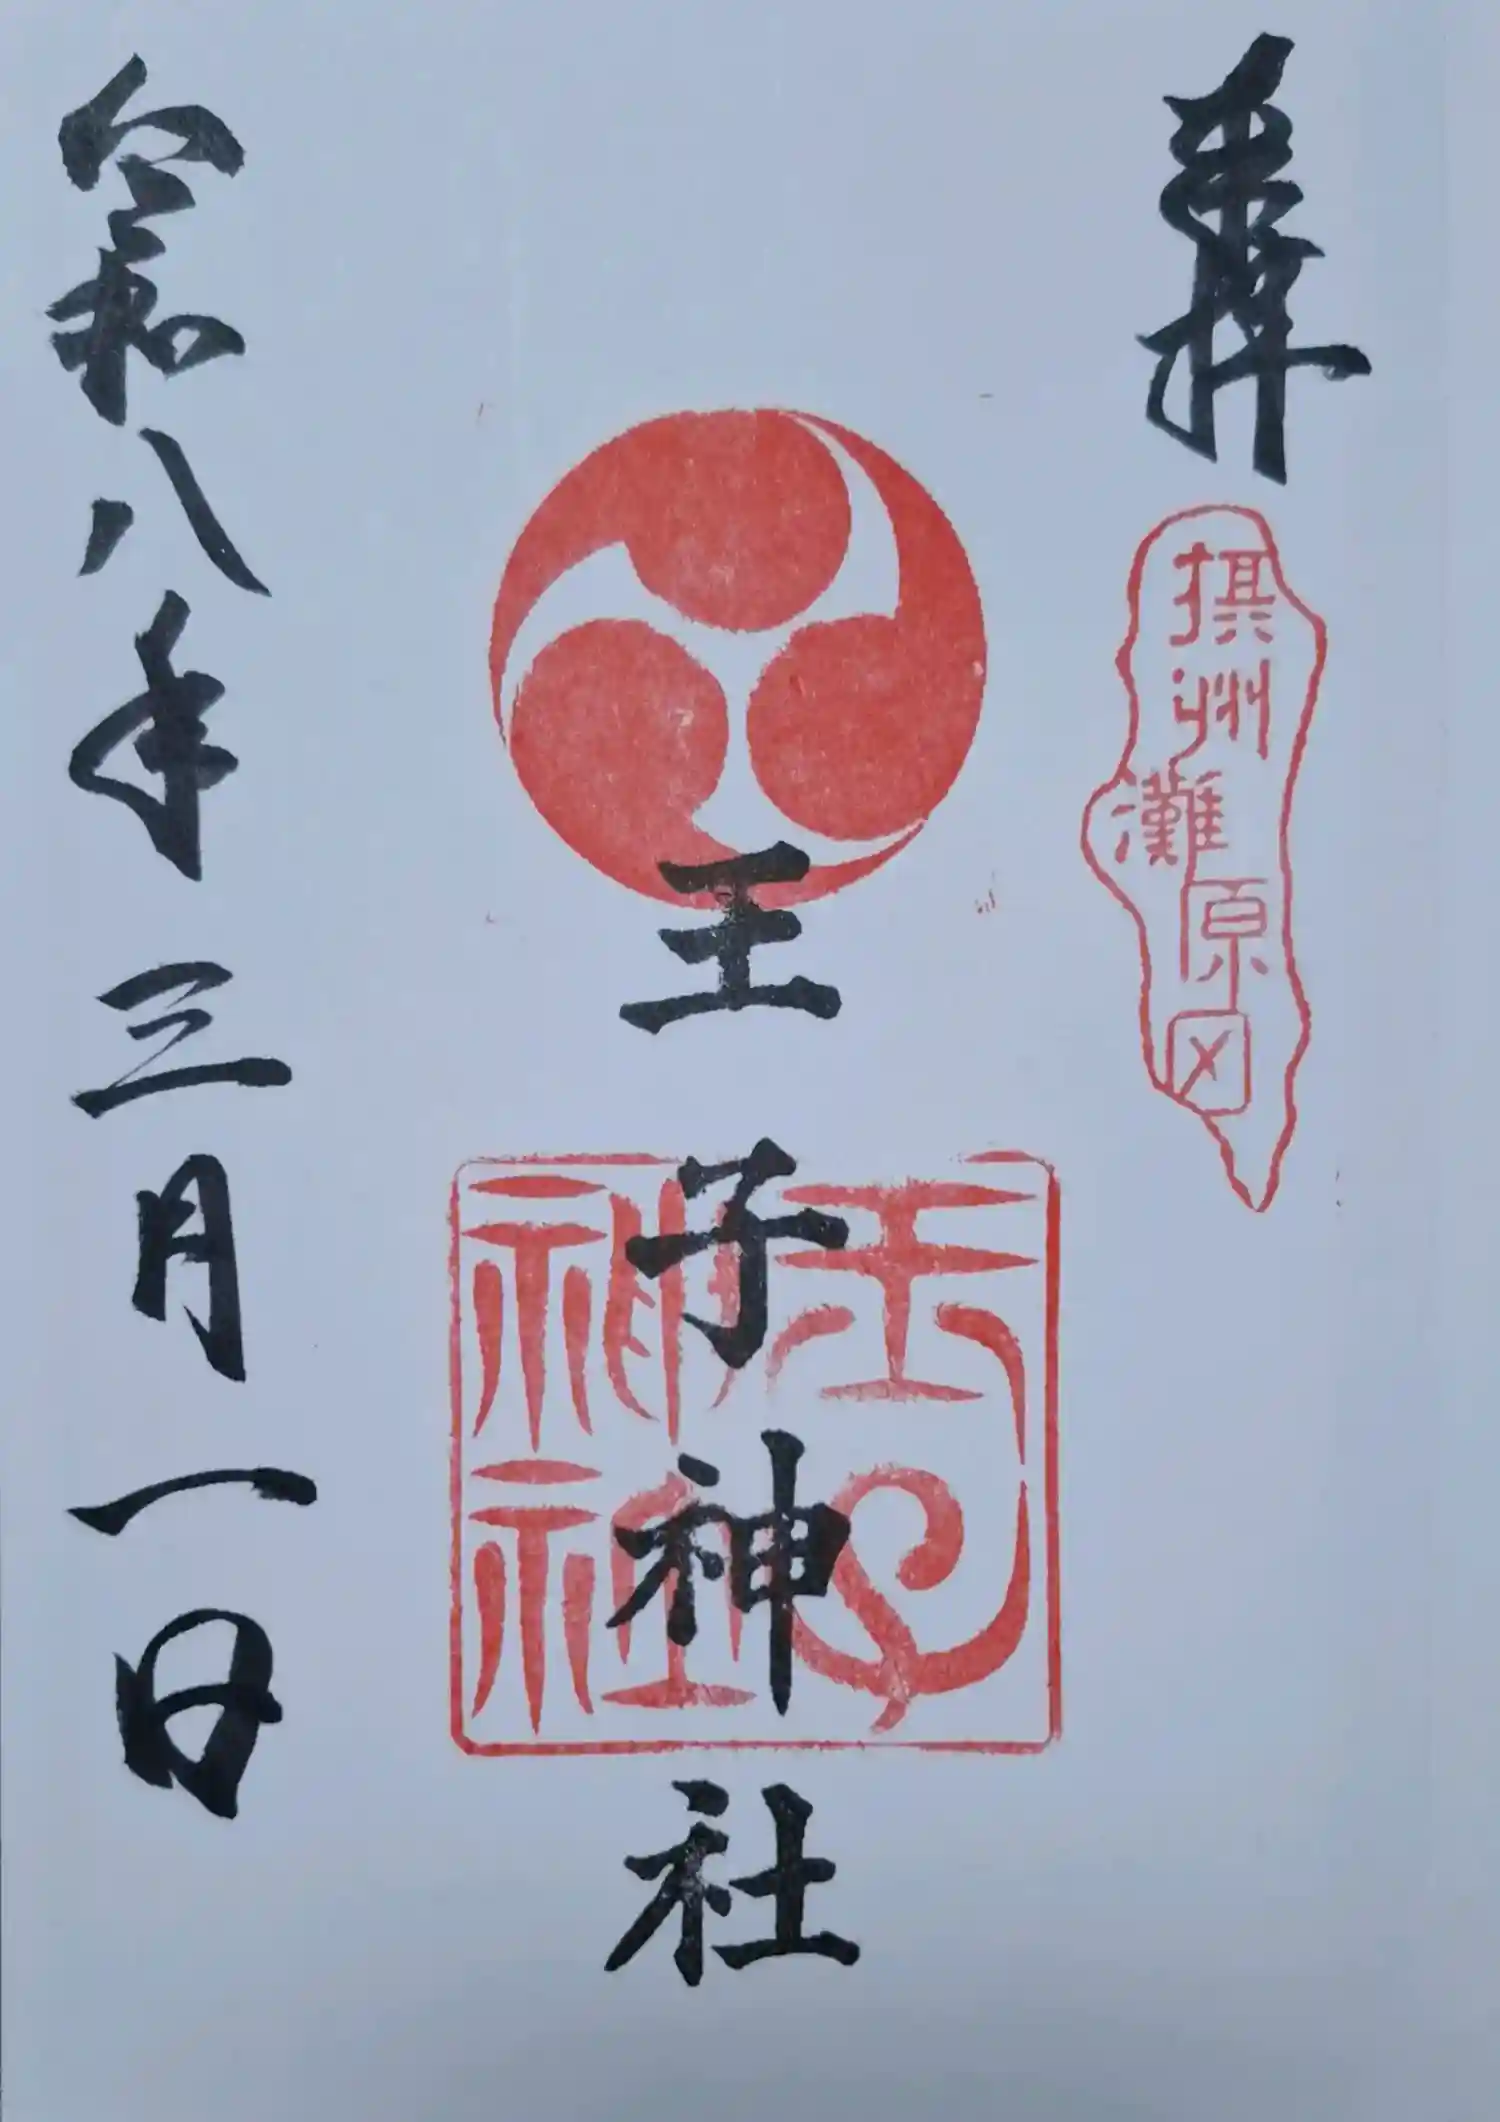 奉拝
摂州灘原田
王子神社
王子
神社
令和八年三月一日